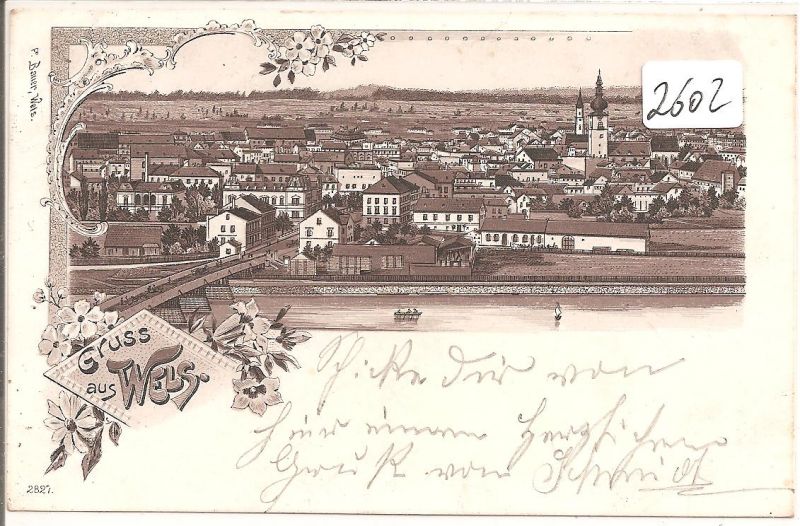 P. Bauer, Wels.
2602
Gruss
aus WELS.
Schicke dir von
hier einen herzlichen
Gruß von Schmidt
2827.